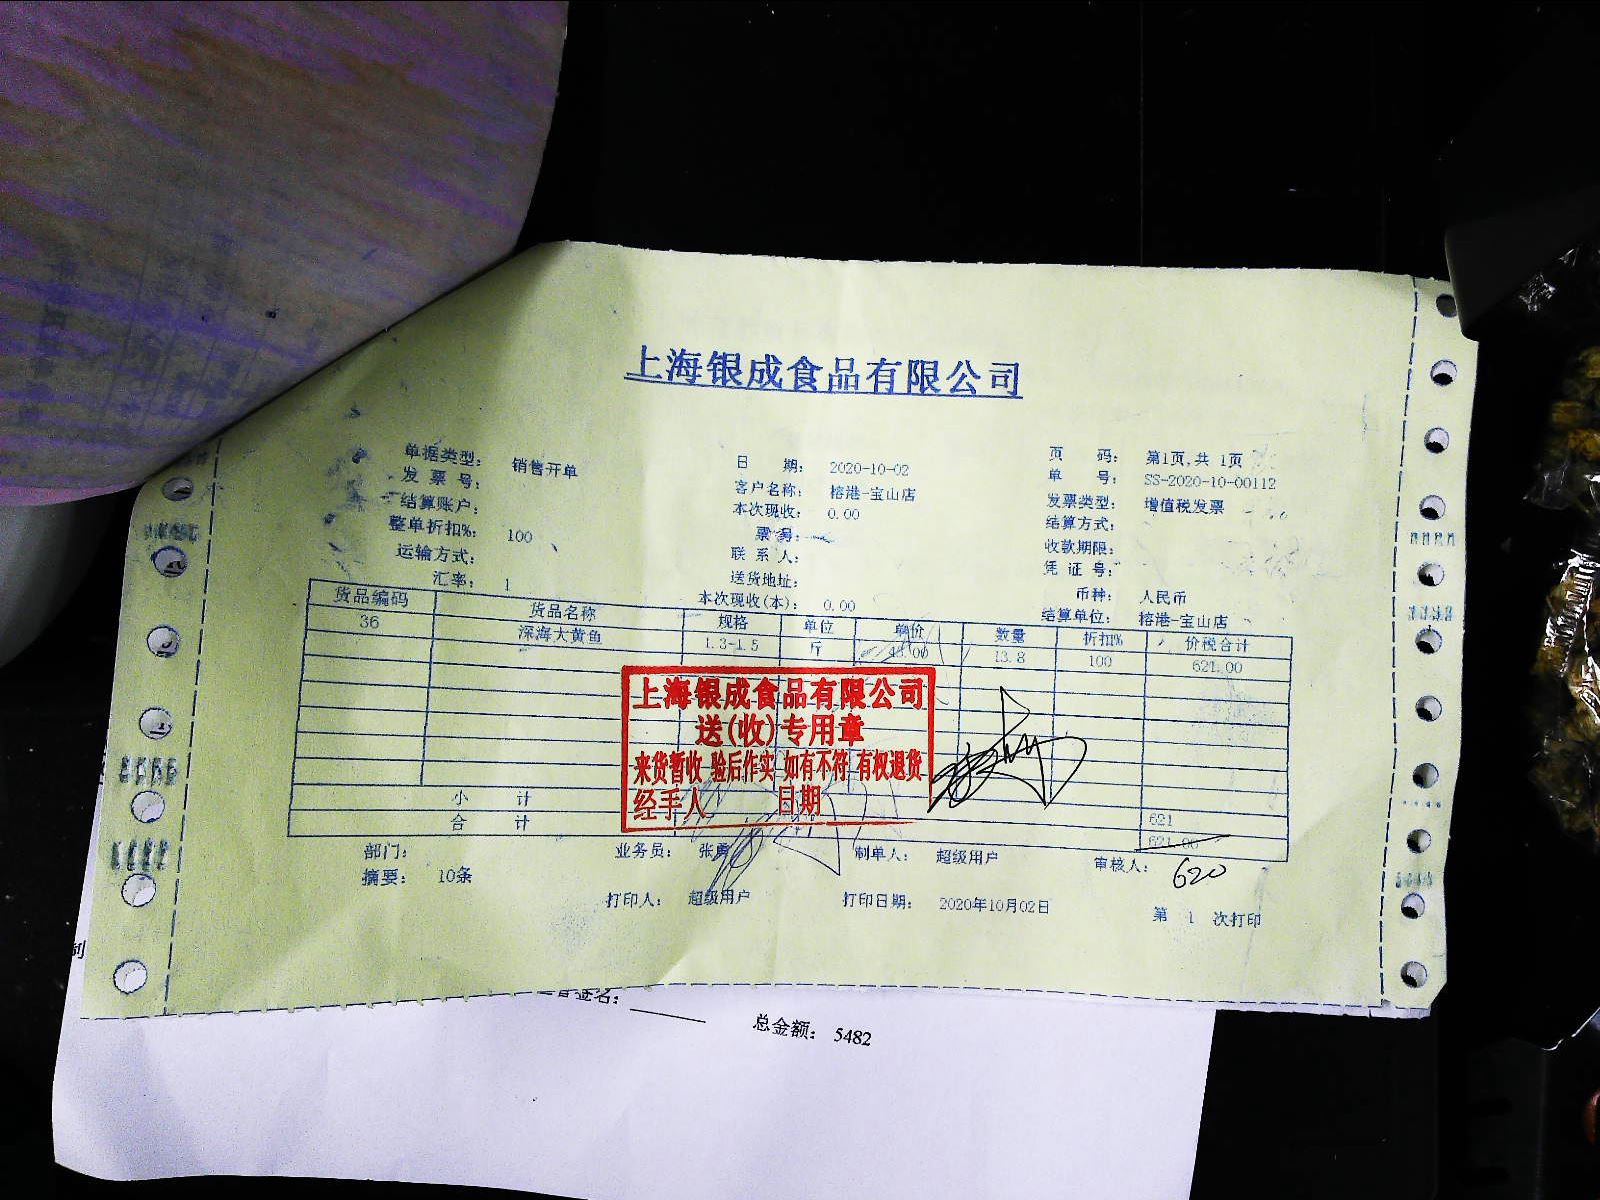 上海银成食品有限公司
单据类型： 销售开单 日 期： 2020-10-02 页 码： 第1页,共 1页
发 票 号： 客户名称： 榕港-宝山店 单 号： SS-2020-10-00112
结算账户： 本次现收： 0.00 发票类型： 增值税发票
整单折扣%： 100 票号： 结算方式：
运输方式： 联 系 人： 收款期限：
汇率： 1 送货地址： 凭 证 号：
本次现收(本)： 0.00 币种： 人民币
结算单位： 榕港-宝山店
货品编码 货品名称 规格 单位 单价 数量 折扣% 价税合计
36 深海大黄鱼 1.3-1.5 斤 45.00 13.8 100 621.00
上海银成食品有限公司
送(收)专用章
来货暂收 验后作实 如有不符 有权退货
经手人 日期
小 计 621
合 计 621.00
部门： 业务员： 张勇 制单人： 超级用户 审核人： 620
摘要： 10条
打印人： 超级用户 打印日期： 2020年10月02日 第 1 次打印
制
签名：
总金额： 5482